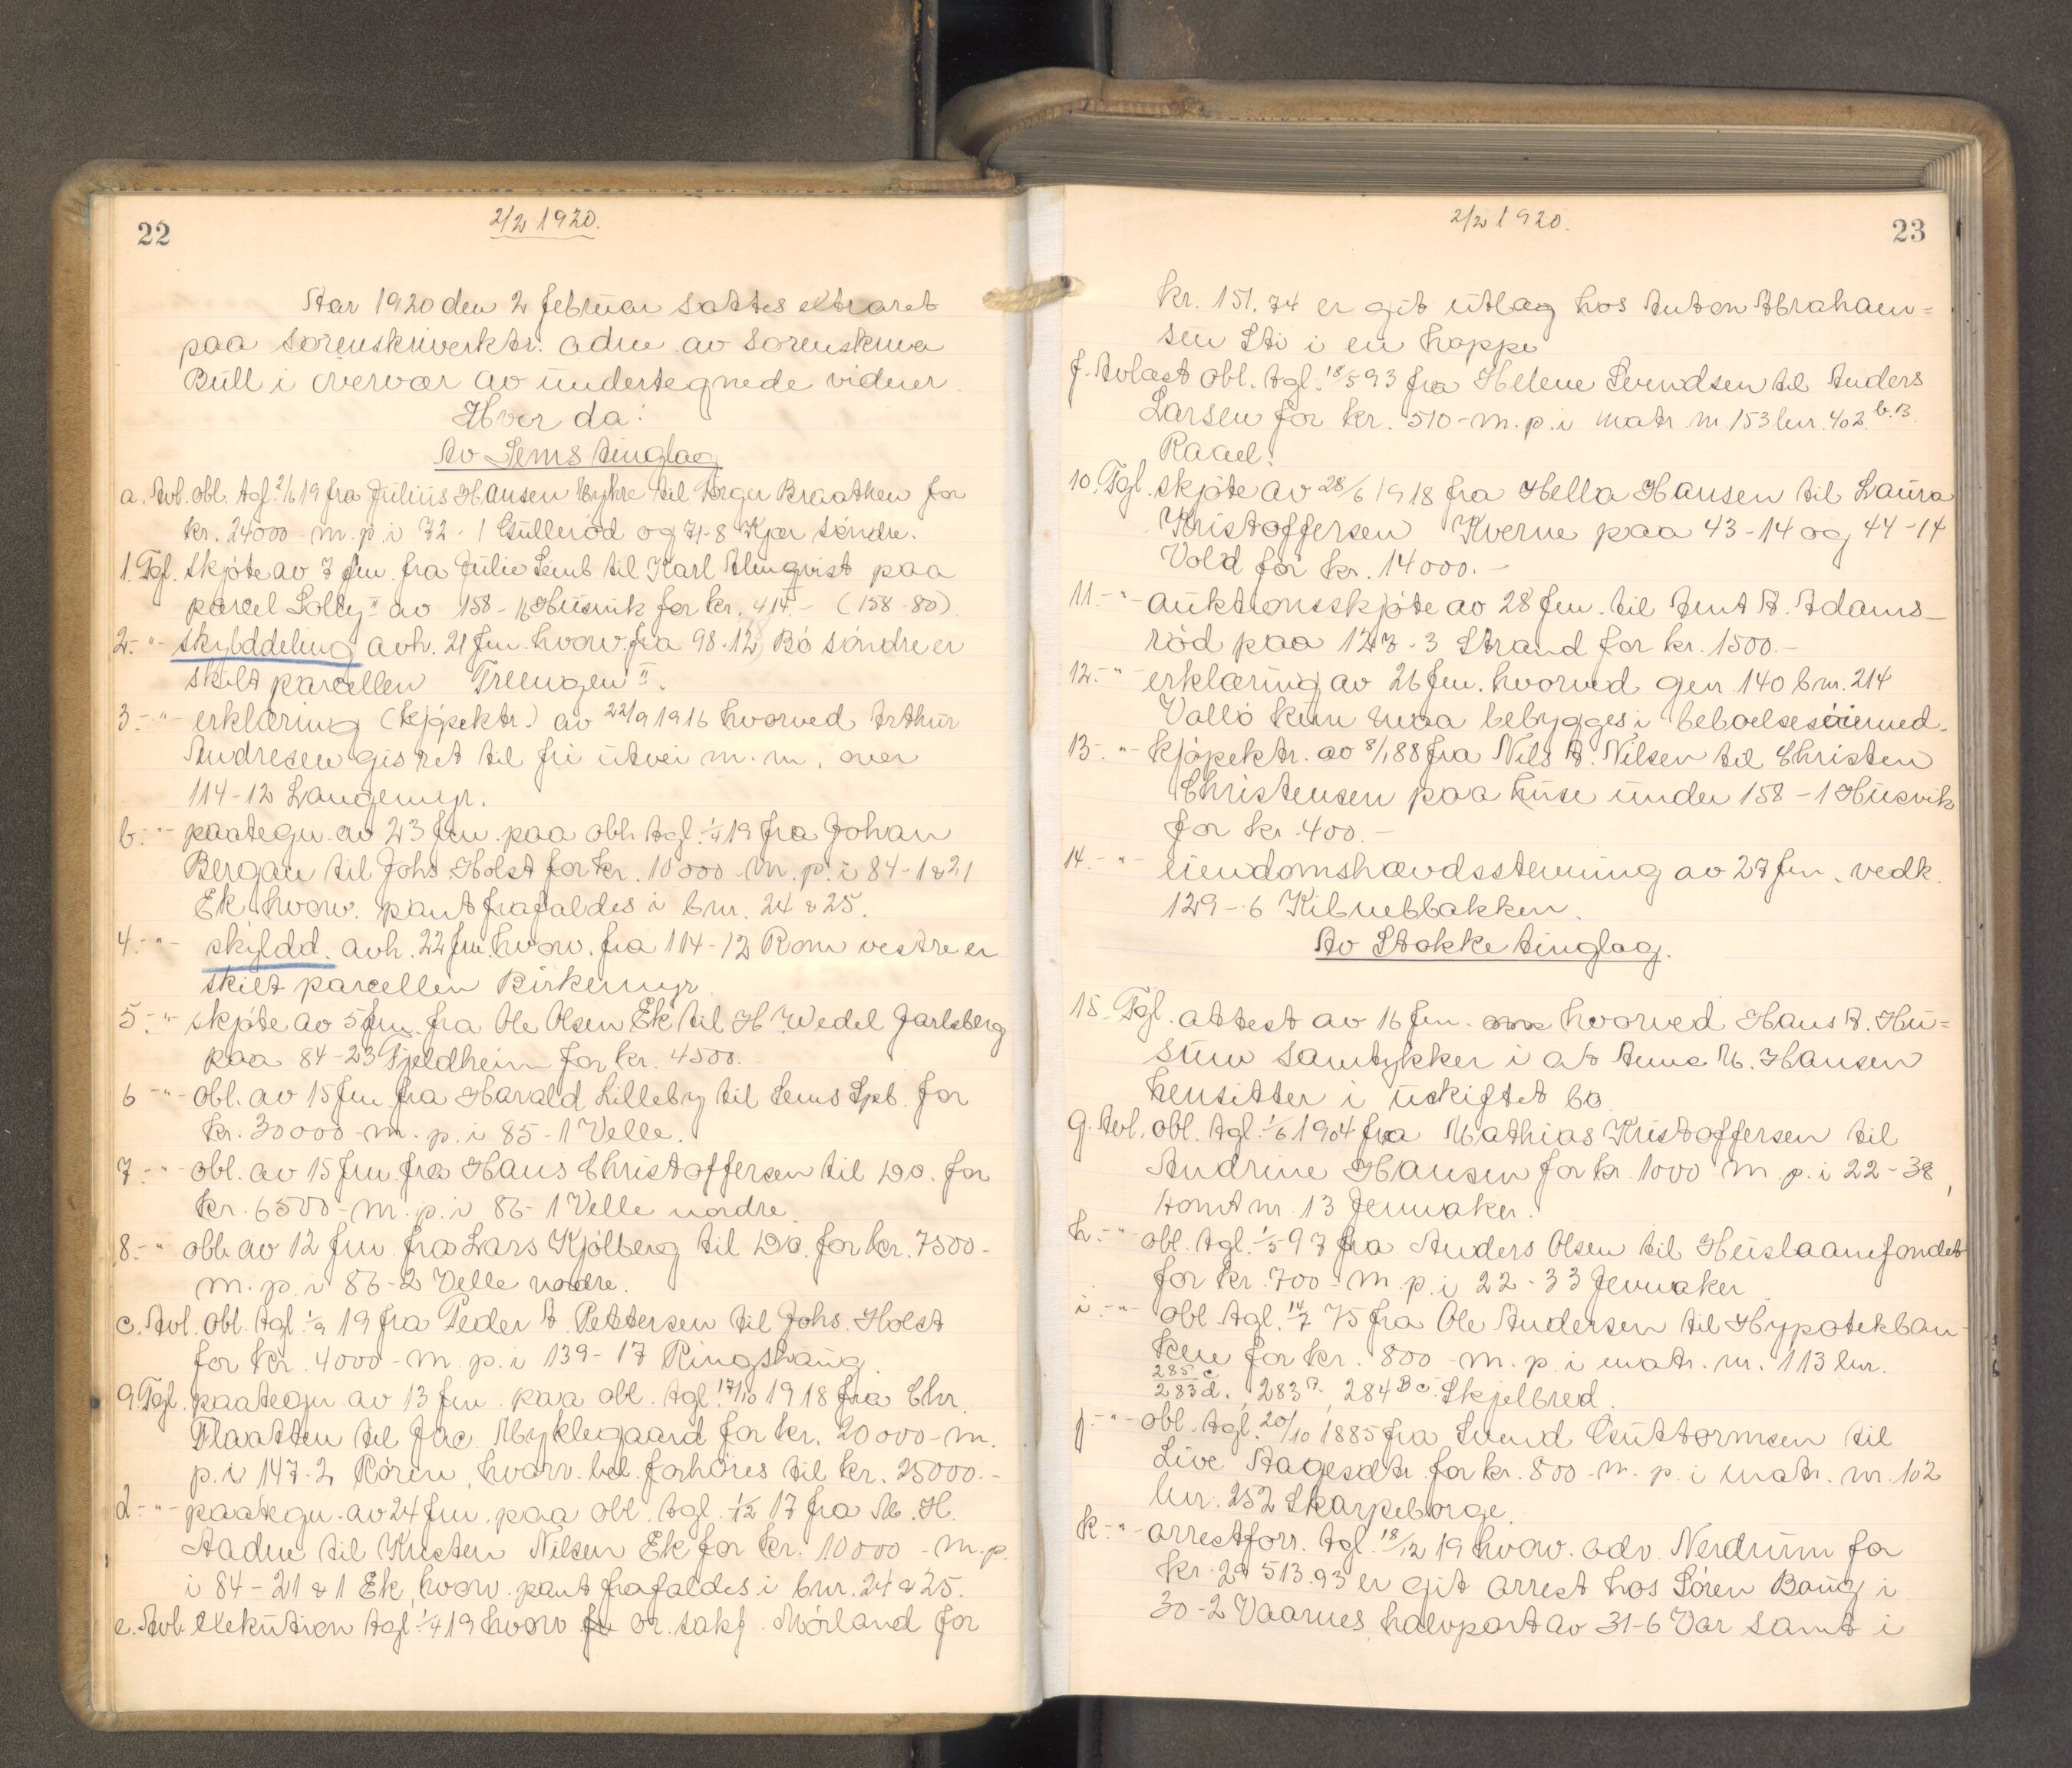 22
2/2 1920.
Aar 1920 den 2 februar sattes extraret
paa sorenskriverktr. adm av sorenskriver
Bull i overvær av undertegnede vidner
Hvor da:
Av Sems tinglag
a. Avl. obl. tgl. 2/6 19 fra Julius Hansen Myhre til Torger Braathen for
kr. 24000 - m. p. i 72 - 1 Gulleröd og 71-8 Kjær söndre.
1. Tgl. skjöte av 7 jnu. fra Julie Lemb til Karl Almqvist paa
parcel Solby II av 158 - 16 Husvik for kr. 414.- (158-80)
2. -"- skylddeling avh. 21 jnu. hvorv. fra 98-12 Bö söndre er
skilt parcellen Treengen II.
3. -"- erklæring (kjöpektr.) av 22/9 1916 hvorved Arthur
Andresen gis ret til fri utvei m. m. over
114-12 Langemyr.
b. -"- paategn. av 23 jnu. paa obl. tgl. 1/4 19 fra Johan
Bergan til Johs Holst for kr. 10000 - m. p. i 84-1 & 21
Ek hvorv. pant frafaldes i bnr. 24 & 25.
4. -"- skyldd. avh. 22 jnu. hvorv. fra 114-12 Rom vestre er
skilt parcellen Birkemyr
5. -"- skjöte av 5 jnu. fra Ole Olsen Ek til H Wedel Jarlsberg
paa 84-23 Fjeldheim for kr. 4500.-
6 -"- obl. av 15 jnu fra Harald Lilleby til Sems Spb. for
kr. 30000 - m. p. i 85-1 Velle.
7. -"- obl. av 15 jnu fra Hans Christoffersen til Do. for
kr. 6500 - m. p. i 86-1 Velle nordre.
8. -"- obl. av 12 jnu fra Lars Kjölberg til Do. for kr. 7500 -
m. p. i 86-2 Velle nordre.
c. Avl. obl. tgl. 1/9 19 fra Peder A. Pettersen til Johs. Holst
for kr. 4000 - m. p. i 139-17 Ringshaug.
9. Tgl. paategn av 13 jnu paa obl. tgl. 17/10 1918 fra Chr.
Flaatten til Jac. Myklegaard for kr. 20000 - m.
p. i 147-2 Rören, hvorv. bel. forhöies til kr. 25000.-
d -"- paategn. av 24 jnu. paa obl. tgl. 1/12 17 fra M. H.
Aadne til Kristen Nilsen Ek for kr. 10000 - m. p.
i 84-21 & 1 Ek, hvorv. pant frafaldes i bnr. 24 & 25.
e. Avl. exekution tgl. 1/4 19 hvorv or. sakf. Mörland for
23
2/2 1920.
kr. 151.74 er git utlæg hos Anton Abraham=
sen Sti i en hoppe
f. Avlæst obl. tgl. 18/5 93 fra Helene Svendsen til Anders
Larsen for kr. 510 - m. p. i matr. nr. 153 lnr. 402 b. B.
Raael.
10. Tgl. skjöte av 28/6 1918 fra Hella Hansen til Laura
Kristoffersen Kverne paa 43-14 og 44-14
Vold for kr. 14000.-
11. -"- auktionsskjöte av 28 jnu. til Arnt A. Adams-
röd paa 123-3 Strand for kr. 1500.-
12. -"- erklæring av 26 jnu. hvorved gnr. 140 bnr. 214
Vallö kun maa bebygges i beboelsesöiemed.
13. -"- kjöpektr. av 8/1 88 fra Nils A. Nilsen til Christen
Christensen paa huse under 158-1 Husvik
for kr. 400.-
14. -"- eiendomshævdsstevning av 27 jnu. vedk.
129-6 Kilnebbakken.
Av Stokke tinglag.
15. Tgl. attest av 16 jnu. hvorved Hans A. Hu=
sum samtykker i at Anne M. Hansen
hensitter i uskiftet bo.
g. Avl. obl. tgl. 1/6 1904 fra Mathias Kristoffersen til
Andrine Hansen for kr. 1000 m. p. i 22-38,
tomt nr. 13 Jernaker.
h. -"- obl. tgl. 1/5 97 fra Anders Olsen til Huslaanefondet
for kr. 700 - m. p. i 22-33 Jernaker
i. -"- obl tgl. 14/7 75 fra Ole Andersen til Hypotekban-
ken for kr. 800 - m. p. i matr. nr. 113 lnr.
285 c
283 d., 283 A, 284 B c. Skjelbred.
j. -"- obl. tgl. 20/10 1885 fra Svend Guttormsen til
Live Aagesdtr. for kr. 800 - m. p. i matr. nr. 102
lnr. 252 Skarpeborge.
k -"- arrestforr. tgl. 18/12 19 hvorv. adv. Nerdrum for
kr. 29513.93 er git arrest hos Sören Bang i
30-2 Vaarnes halvpart av 31-6 Var samt i